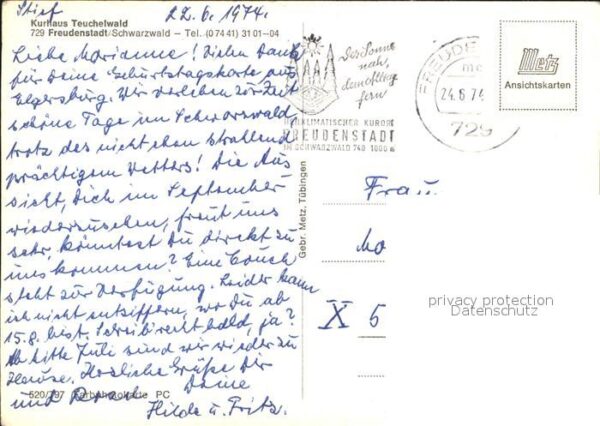 Stief 22.6.1974.
Kurhaus Teuchelwald
729 Freudenstadt/Schwarzwald – Tel. (0 74 41) 31 01–04
Liebe Marianne! Vielen Dank
für Deine Geburtstagskarte aus
Elgersburg. Wir verleben zur Zeit
schöne Tage im Schwarzwald
trotz des nicht eben strahlend
prächtigem Wetters! Die Aus
sicht, Dich im September
wiederzusehen, freut uns
sehr, könntest Du direkt zu
uns kommen? Eine Couch
steht zur Verfügung. Leider kann
ich nicht entziffern, wo Du ab
15.8. bist. Schreib recht bald, ja?
Ab bitte Juli sind wir wieder zu
Hause. Herzliche Grüße Dir
und Deine
Hilde u. Fritz.
520/797 Farbphotokarte PC
Gebr. Metz, Tübingen
Der Sonne
nah,
dem Alltag
fern
HEILKLIMATISCHER KURORT
FREUDENSTADT
IM SCHWARZWALD 740-1000 m
FREUDE
24.6.74
729
Metz
Ansichtskarten
Frau
X 5
privacy protection
Datenschutz